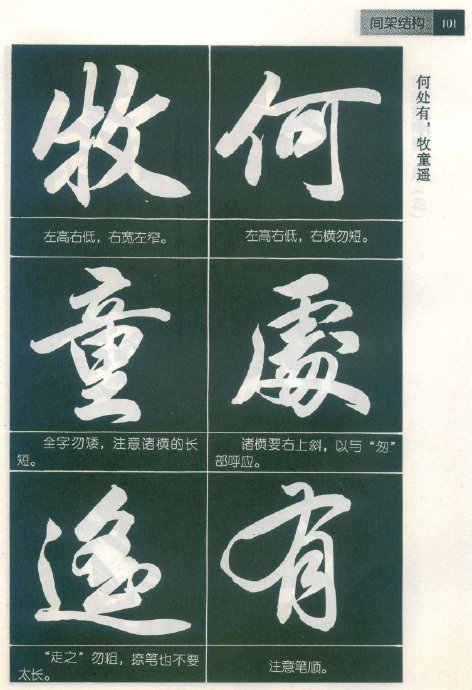 间架结构 101
何处有，牧童遥
何
左高右低，右横勿短。
處
诸横要右上斜，以与“匆”
部呼应。
有
注意笔顺。
牧
左高右低，右宽左窄。
童
全字勿矮，注意诸横的长
短。
遥
“走之”勿粗，捺笔也不要
太长。